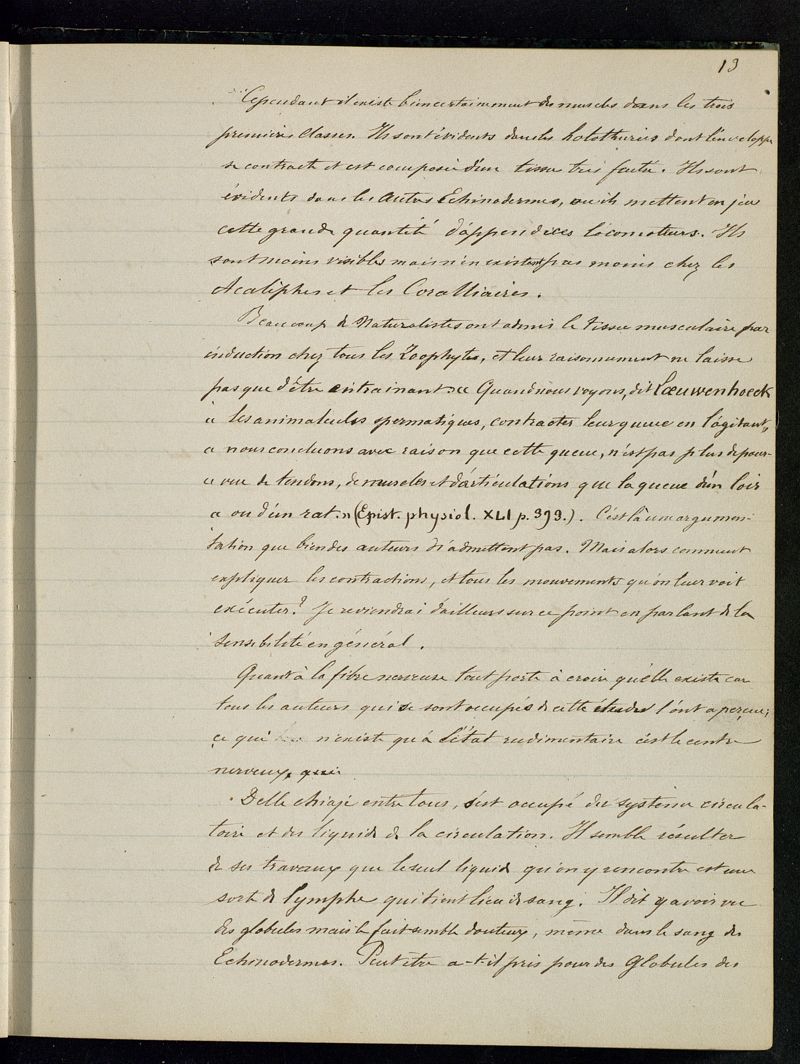 13
Cependant il existe bien certainement des muscles dans les trois
premières classes. Ils sont évidents dans les holothuries dont l'enveloppe
se contracte et est composée d'un tissu très forte. Ils sont
évidents dans les autres Echinodermes, où ils mettent en jeu
cette grande quantité d'appendices locomoteurs. Ils
sont moins visibles mais n'en existent pas moins chez les
Acalèphes et les Coralliaires.
Beaucoup de Naturalistes ont admis le tissu musculaire par
induction chez tous les Zoophytes, et leur raisonnement ne laisse
pas que d'être entrainant « Quand nous voyons, dit Lœuwenhoeck
« les animalcules spermatiques, contracter leur queue en l'agitant,
« nous concluons avec raison que cette queue, n'est pas plus dépour-
« vue de tendons, de muscles et d'articulations que la queue d'un loir
« ou d'un rat. » (Epist. physiol. XLI p. 393.). C'est là une argumen-
tation que bien des auteurs n'admettent pas. Mais alors comment
expliquer les contractions, et tous les mouvements qu'on leur voit
exécuter? Je reviendrai d'ailleurs sur ce point en parlant de la
sensibilité en général.
Quant à la fibre nerveuse tout porte à croire qu'elle existe car
tous les auteurs qui se sont occupés de cette études l'ont aperçue;
ce qui n'existe qu'à l'état rudimentaire c'est le centre
nerveux, qui
Delle chiaje entre tous, s'est occupé du système circula-
toire et des liquide de la circulation. Il semble résulter
de ses travaux que le seul liquide qu'on y rencontre est une
sorte de lymphe qui tient lieu de sang. Il dit y avoir vu
des globules mais le fait semble douteux, même dans le sang des
Echinodermes. Peut être a-t-il pris pour des Globules des